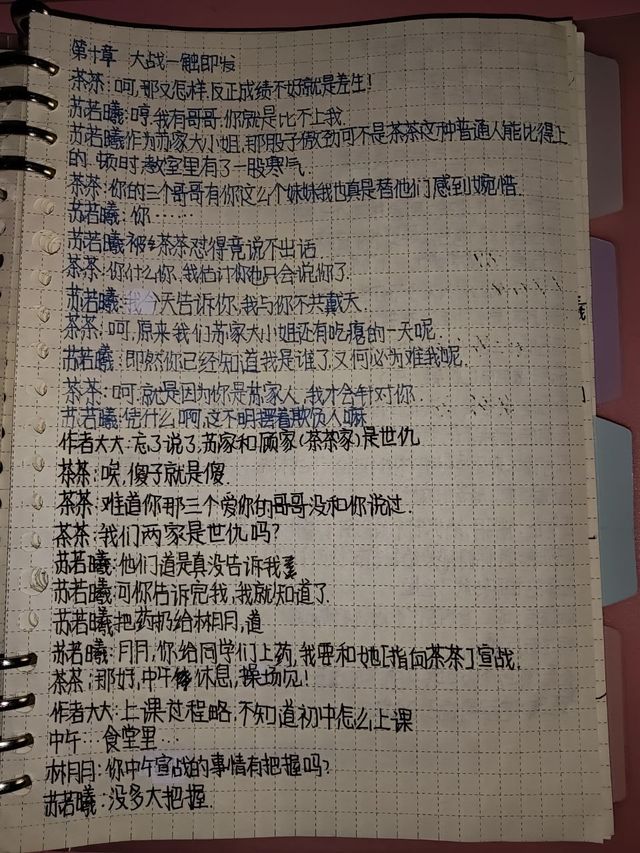 第十章 大战一触即发
茶茶:呵,那又怎样,反正成绩不好就是差生!
苏若曦:哼,我有哥哥,你就是比不上我.
苏若曦作为苏家大小姐,那股子傲劲可不是茶茶这种普通人能比得上
的.顿时,教室里有了一股寒气.
茶茶:你的三个哥哥有你这么个妹妹我也真是替他们感到惋惜.
苏若曦:你······
苏若曦被茶茶怼得竟说不出话
茶茶:你什么你,我估计你也只会说你了.
苏若曦:我今天告诉你,我与你不共戴天.
茶茶:呵,原来我们苏家大小姐还有吃瘪的一天呢.
苏若曦:即然你已经知道我是谁了,又何必为难我呢.
茶茶:呵.就是因为你是苏家人,我才会针对你.
苏若曦:凭什么啊,这不明摆着欺负人嘛
作者大大:忘了说了,苏家和顾家(茶茶家)是世仇
茶茶:唉,傻子就是傻.
茶茶:难道你那三个爱你的哥哥没和你说过.
茶茶:我们两家是世仇吗?
苏若曦:他们道是真没告诉我
苏若曦:可你告诉完我,我就知道了.
苏若曦把药扔给林月月,道
苏若曦:月月,你给同学们上药,我要和她[指向茶茶]宣战.
茶茶:那好,中午休息,操场见!
作者大大:上课过程略,不知道初中怎么上课
中午···食堂里···
林月月:你中午宣战的事情有把握吗?
苏若曦:没多大把握.